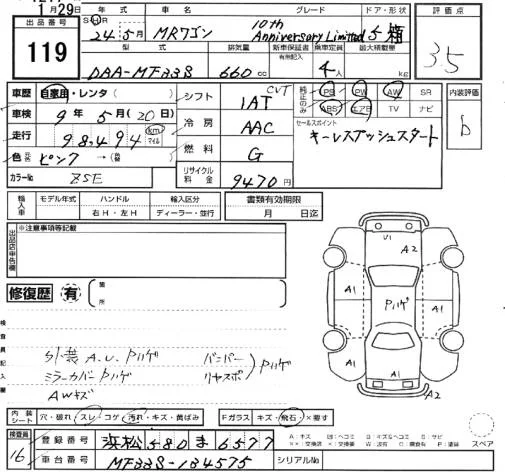 1月29日
出品番号 年式 車名 グレード ドア・形状 評価点
119
24年5月 MRワゴン 10th Anniversary Limited 5 箱
3.5
型式 排気量 新車保証書 有無記入 乗車定員 最大積載量
DBA-MF33S 660 cc 4人 kg
車歴 自家用・レンタ( ) シフト CVT 1AT 純正のみ PS PW AW SR 内装評価
ABS エアB TV ナビ
車検 9年5月(20日) 冷房 AAC セールスポイント b
走行 98,494 km マイル 燃料 G キーレスプッシュスタート
色 ピンク →(色替 ) リサイクル料金 9470円
カラーNo ZSE
輸入車 モデル年式 ハンドル 輸入区分 書類有効期限
右H・左H ディーラー・並行 月 日迄
出品店申告欄 ※注意事項等記載
修復歴 有 箇所
検査員記入欄
外装 A.U.Pハゲ バンパー
ミラーカバーPハゲ リヤスポ )Pハゲ
AWキズ
U1 A2
A1 Pハゲ A1
A1 A1
A2
内装シート 穴・破れ・スレ・コゲ・汚れ・キズ・黄ばみ Fガラス キズ・飛石・×要す
A:キズ
P:塗装 スペア
検査員 16
登録番号 浜松580ま6577
車台番号 MF33S-134575 シリアルNo